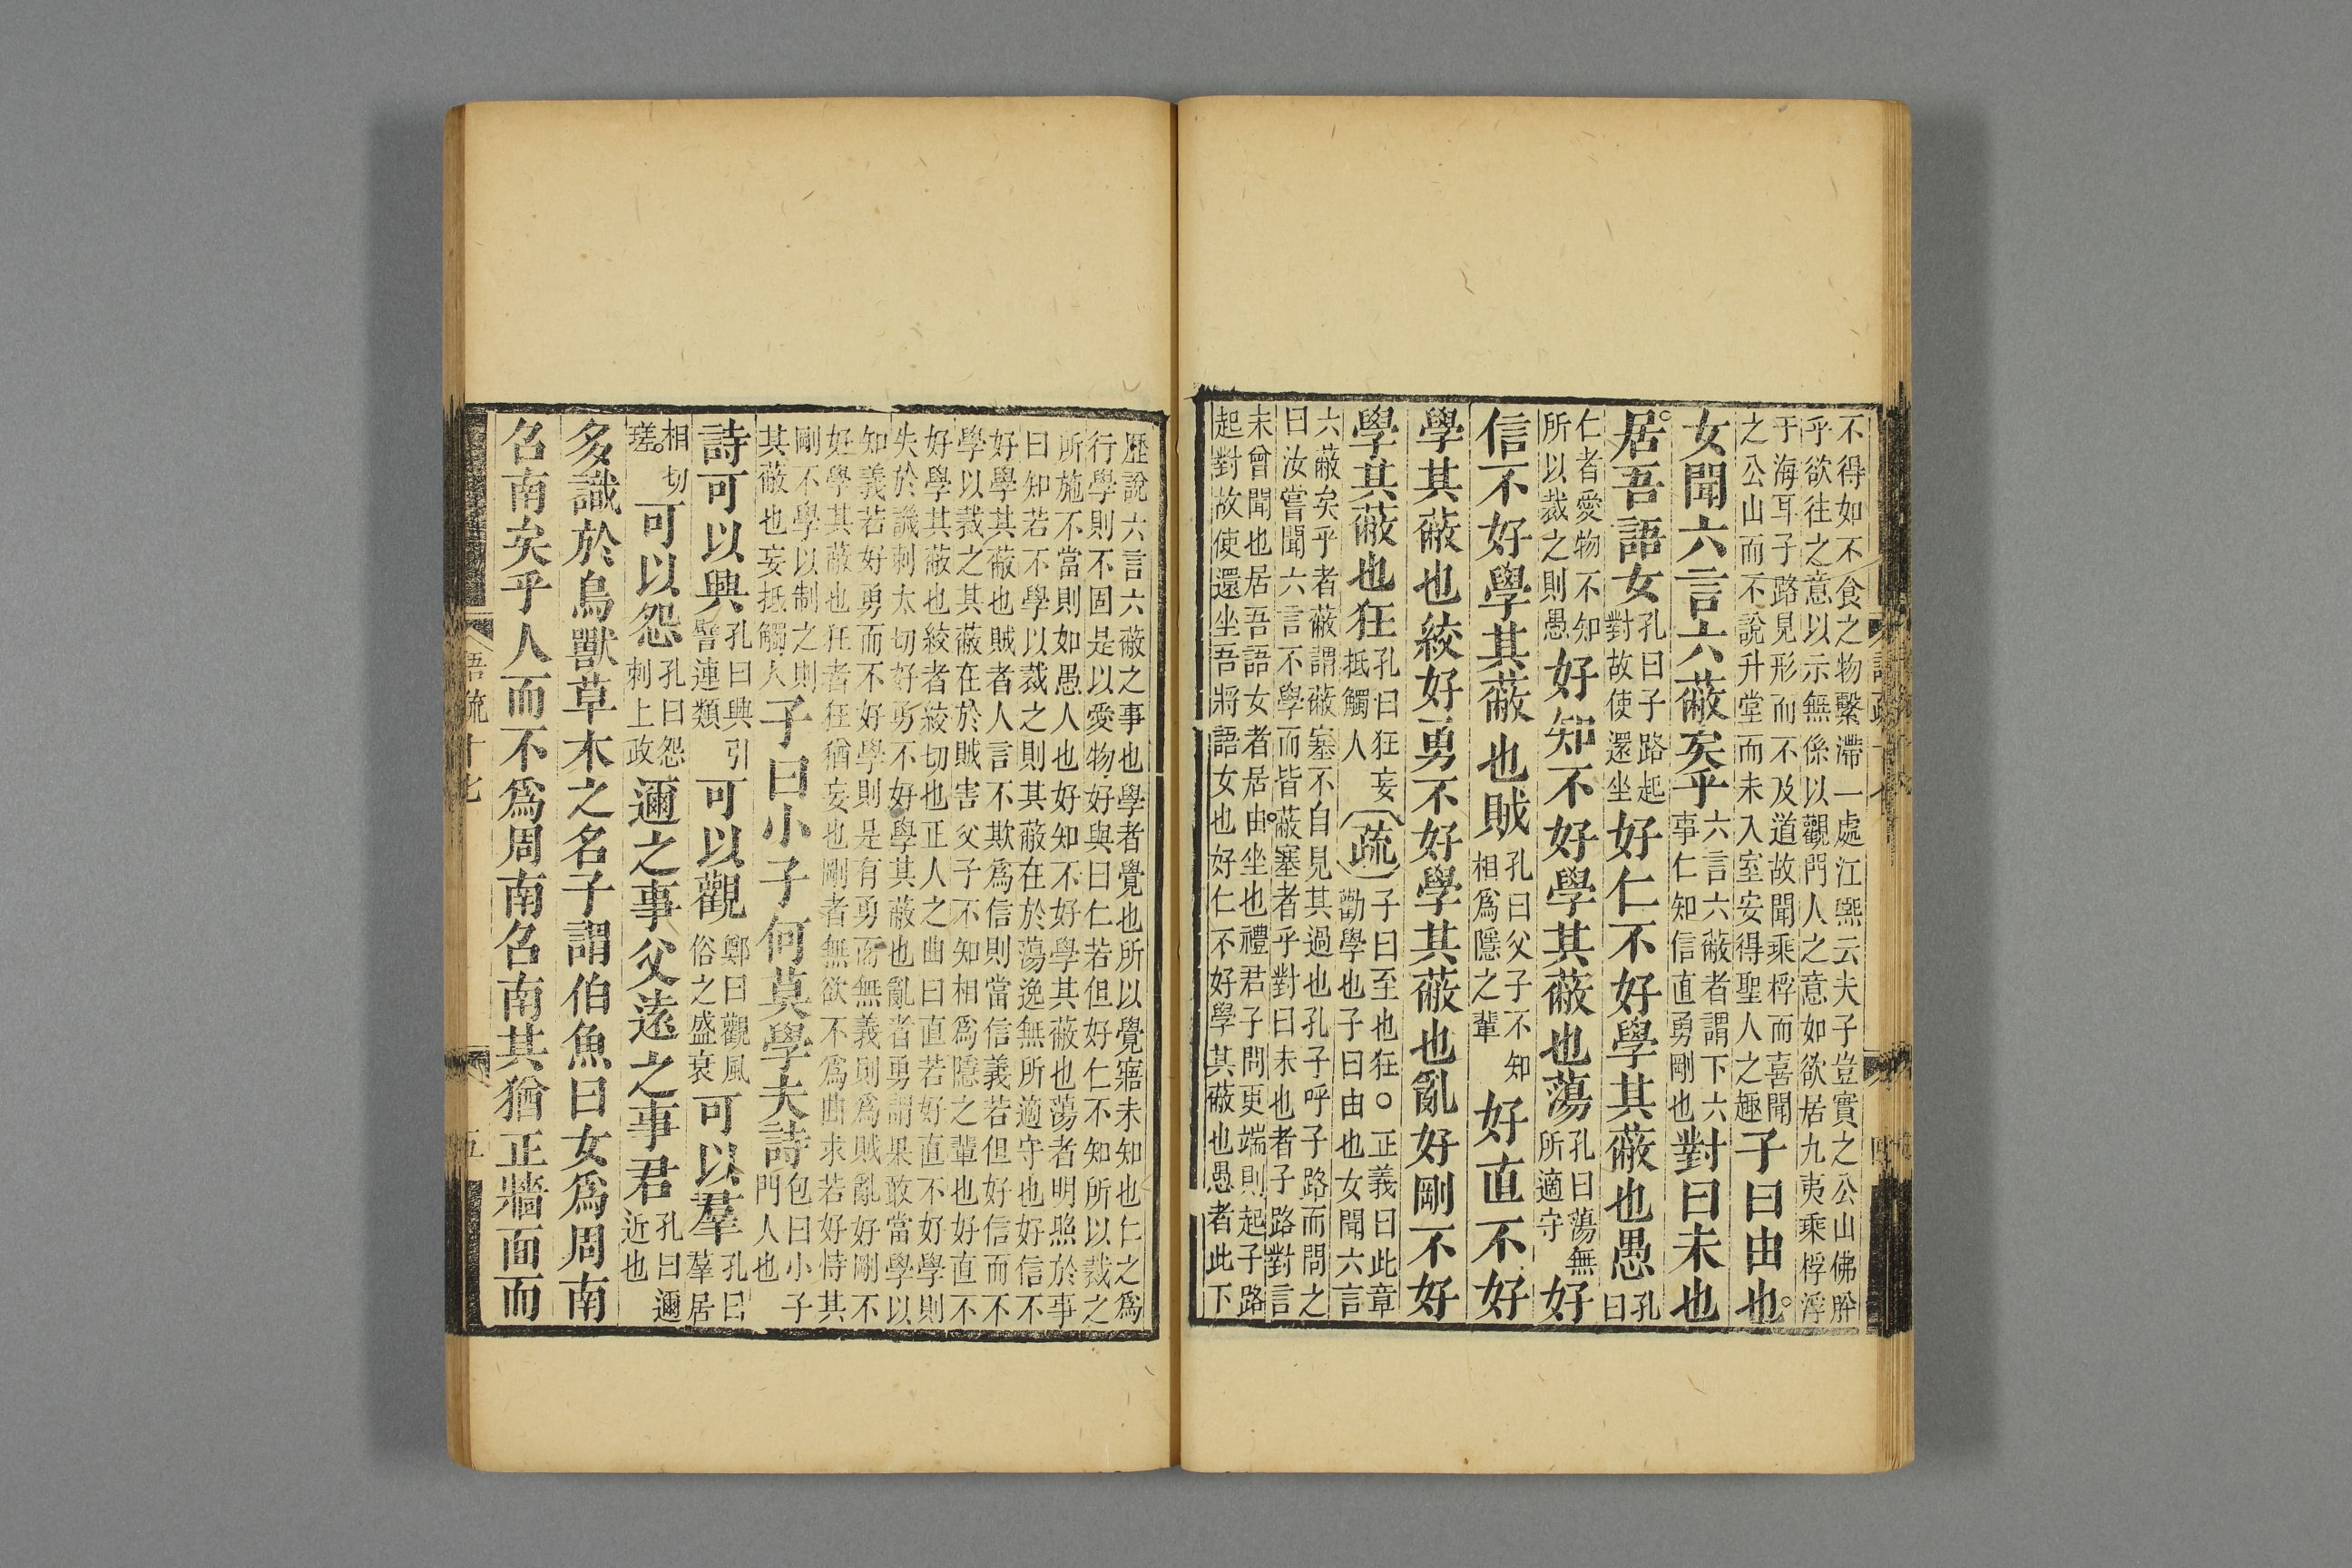 不得如不食之物繫滯一處江熙云夫子豈實之公山佛肸
乎欲往之意以示無係以觀門人之意如欲居九夷乘桴浮
于海耳子路見形而不及道故聞乘桴而喜聞
之公山而不說升堂而未入室安得聖人之趣
子曰由也
女聞六言六蔽矣乎
六言六蔽者謂下六
事仁知信直勇剛也
對曰未也
居吾語女
孔曰子路起
對故使還坐
好仁不好學其蔽也愚
孔
曰
仁者愛物不知
所以裁之則愚
好知不好學其蔽也蕩
孔曰蕩無
所適守
好
信不好學其蔽也賊
孔曰父子不知
相爲隱之輩
好直不好
學其蔽也絞好勇不好學其蔽也亂好剛不好
學其蔽也狂
孔曰狂妄
抵觸人
疏
子曰至也狂○正義曰此章
勸學也子曰由也女聞六言
六蔽矣乎者蔽謂蔽塞不自見其過也孔子呼子路而問之
曰汝嘗聞六言不學而皆蔽塞者乎對曰未也者子路對言
未曾聞也居吾語女者居由坐也禮君子問更端則起子路
起對故使還坐吾將語女也好仁不好學其蔽也愚者此下
歷說六言六蔽之事也學者覺也所以覺寤未知也仁之爲
行學則不固是以愛物好與曰仁若但好仁不知所以裁之
所施不當則如愚人也好知不好學其蔽也蕩者明照於事
曰知若不學以裁之則其蔽在於蕩逸無所適守也好信不
好學其蔽也賊者人言不欺爲信則當信義若但好信而不
學以裁之其蔽在於賊害父子不知相爲隱之輩也好直不
好學其蔽也絞者絞切也正人之曲曰直若好直不好學則
失於譏刺太切好勇不好學其蔽也亂者勇謂果敢當學以
知義若好勇而不好學則是有勇而無義則爲賊亂好剛不
好學其蔽也狂者狂猶妄也剛者無欲不爲曲求若好恃其
剛不學以制之則
其蔽也妄抵觸人
子曰小子何莫學夫詩
包曰小子
門人也
詩可以興
孔曰興引
譬連類
可以觀
鄭曰觀風
俗之盛衰
可以羣
孔曰
羣居
相切
瑳
可以怨
孔曰怨
刺上政
邇之事父遠之事君
孔曰邇
近也
多識於鳥獸草木之名子謂伯魚曰女爲周南
召南矣乎人而不爲周南召南其猶正牆面而
語疏十七
五